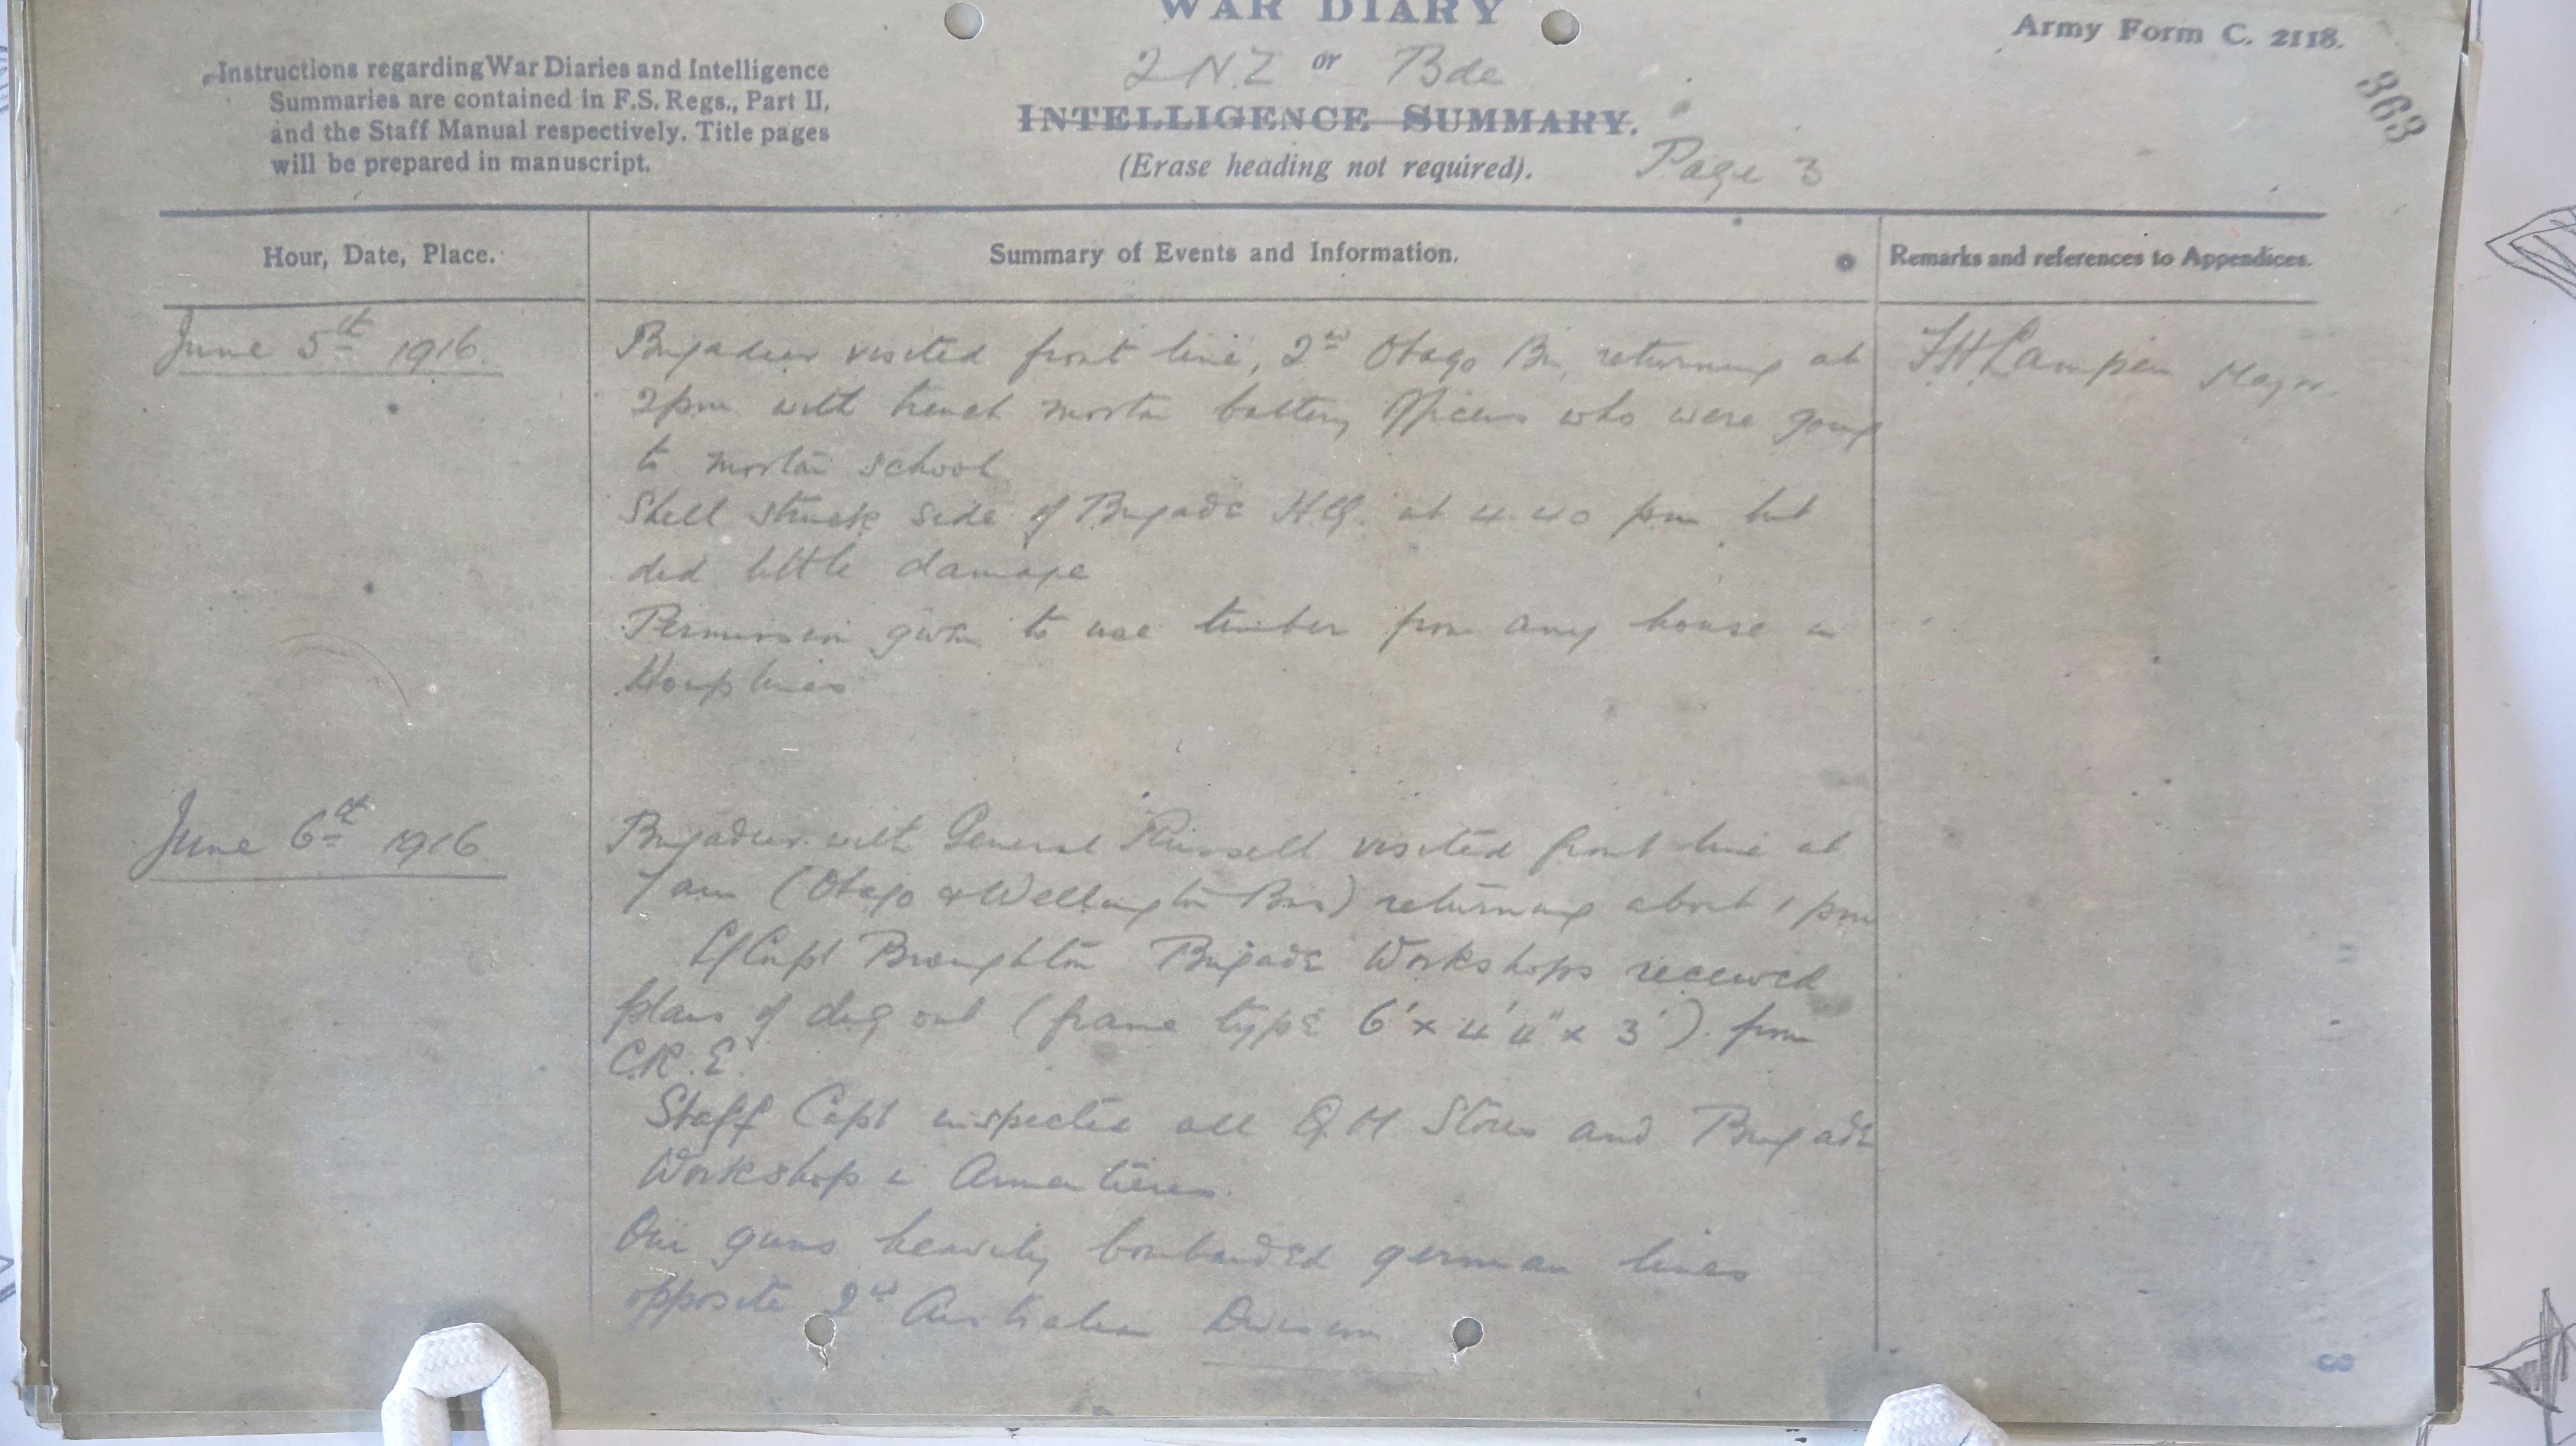 WAR DIARY
Army Form C. 2118.
363
Instructions regarding War Diaries and Intelligence
Summaries are contained in F.S. Regs., Part II,
and the Staff Manual respectively. Title pages
will be prepared in manuscript.
2 N.Z or Bde
INTELLIGENCE SUMMARY.
(Erase heading not required).
Page 3
Hour, Date, Place.
Summary of Events and Information.
Remarks and references to Appendices.
June 5th 1916.
Brigadier visited front line, 2nd Otago Bn, returning at
2pm with trench mortar battery officers who were going
to mortar school
Shell struck side of Brigade HQ. at 4.40 pm but
did little damage
Permission given to use timber from any house in
Houplines
FH Lampen Major.
June 6th 1916.
Brigadier with General Russell visited front line at
7 am (Otago & Wellington Bns) returning about 1 pm
Capt Broughton Brigade Workshops received
plans of dug out (frame type 6' x 4' 4" x 3') from
C.R.E.
Staff Capt inspected all Q.M Stores and Brigade
Workshop in Armentieres.
Our guns heavily bombarded german lines
opposite 2nd Australian Division
3